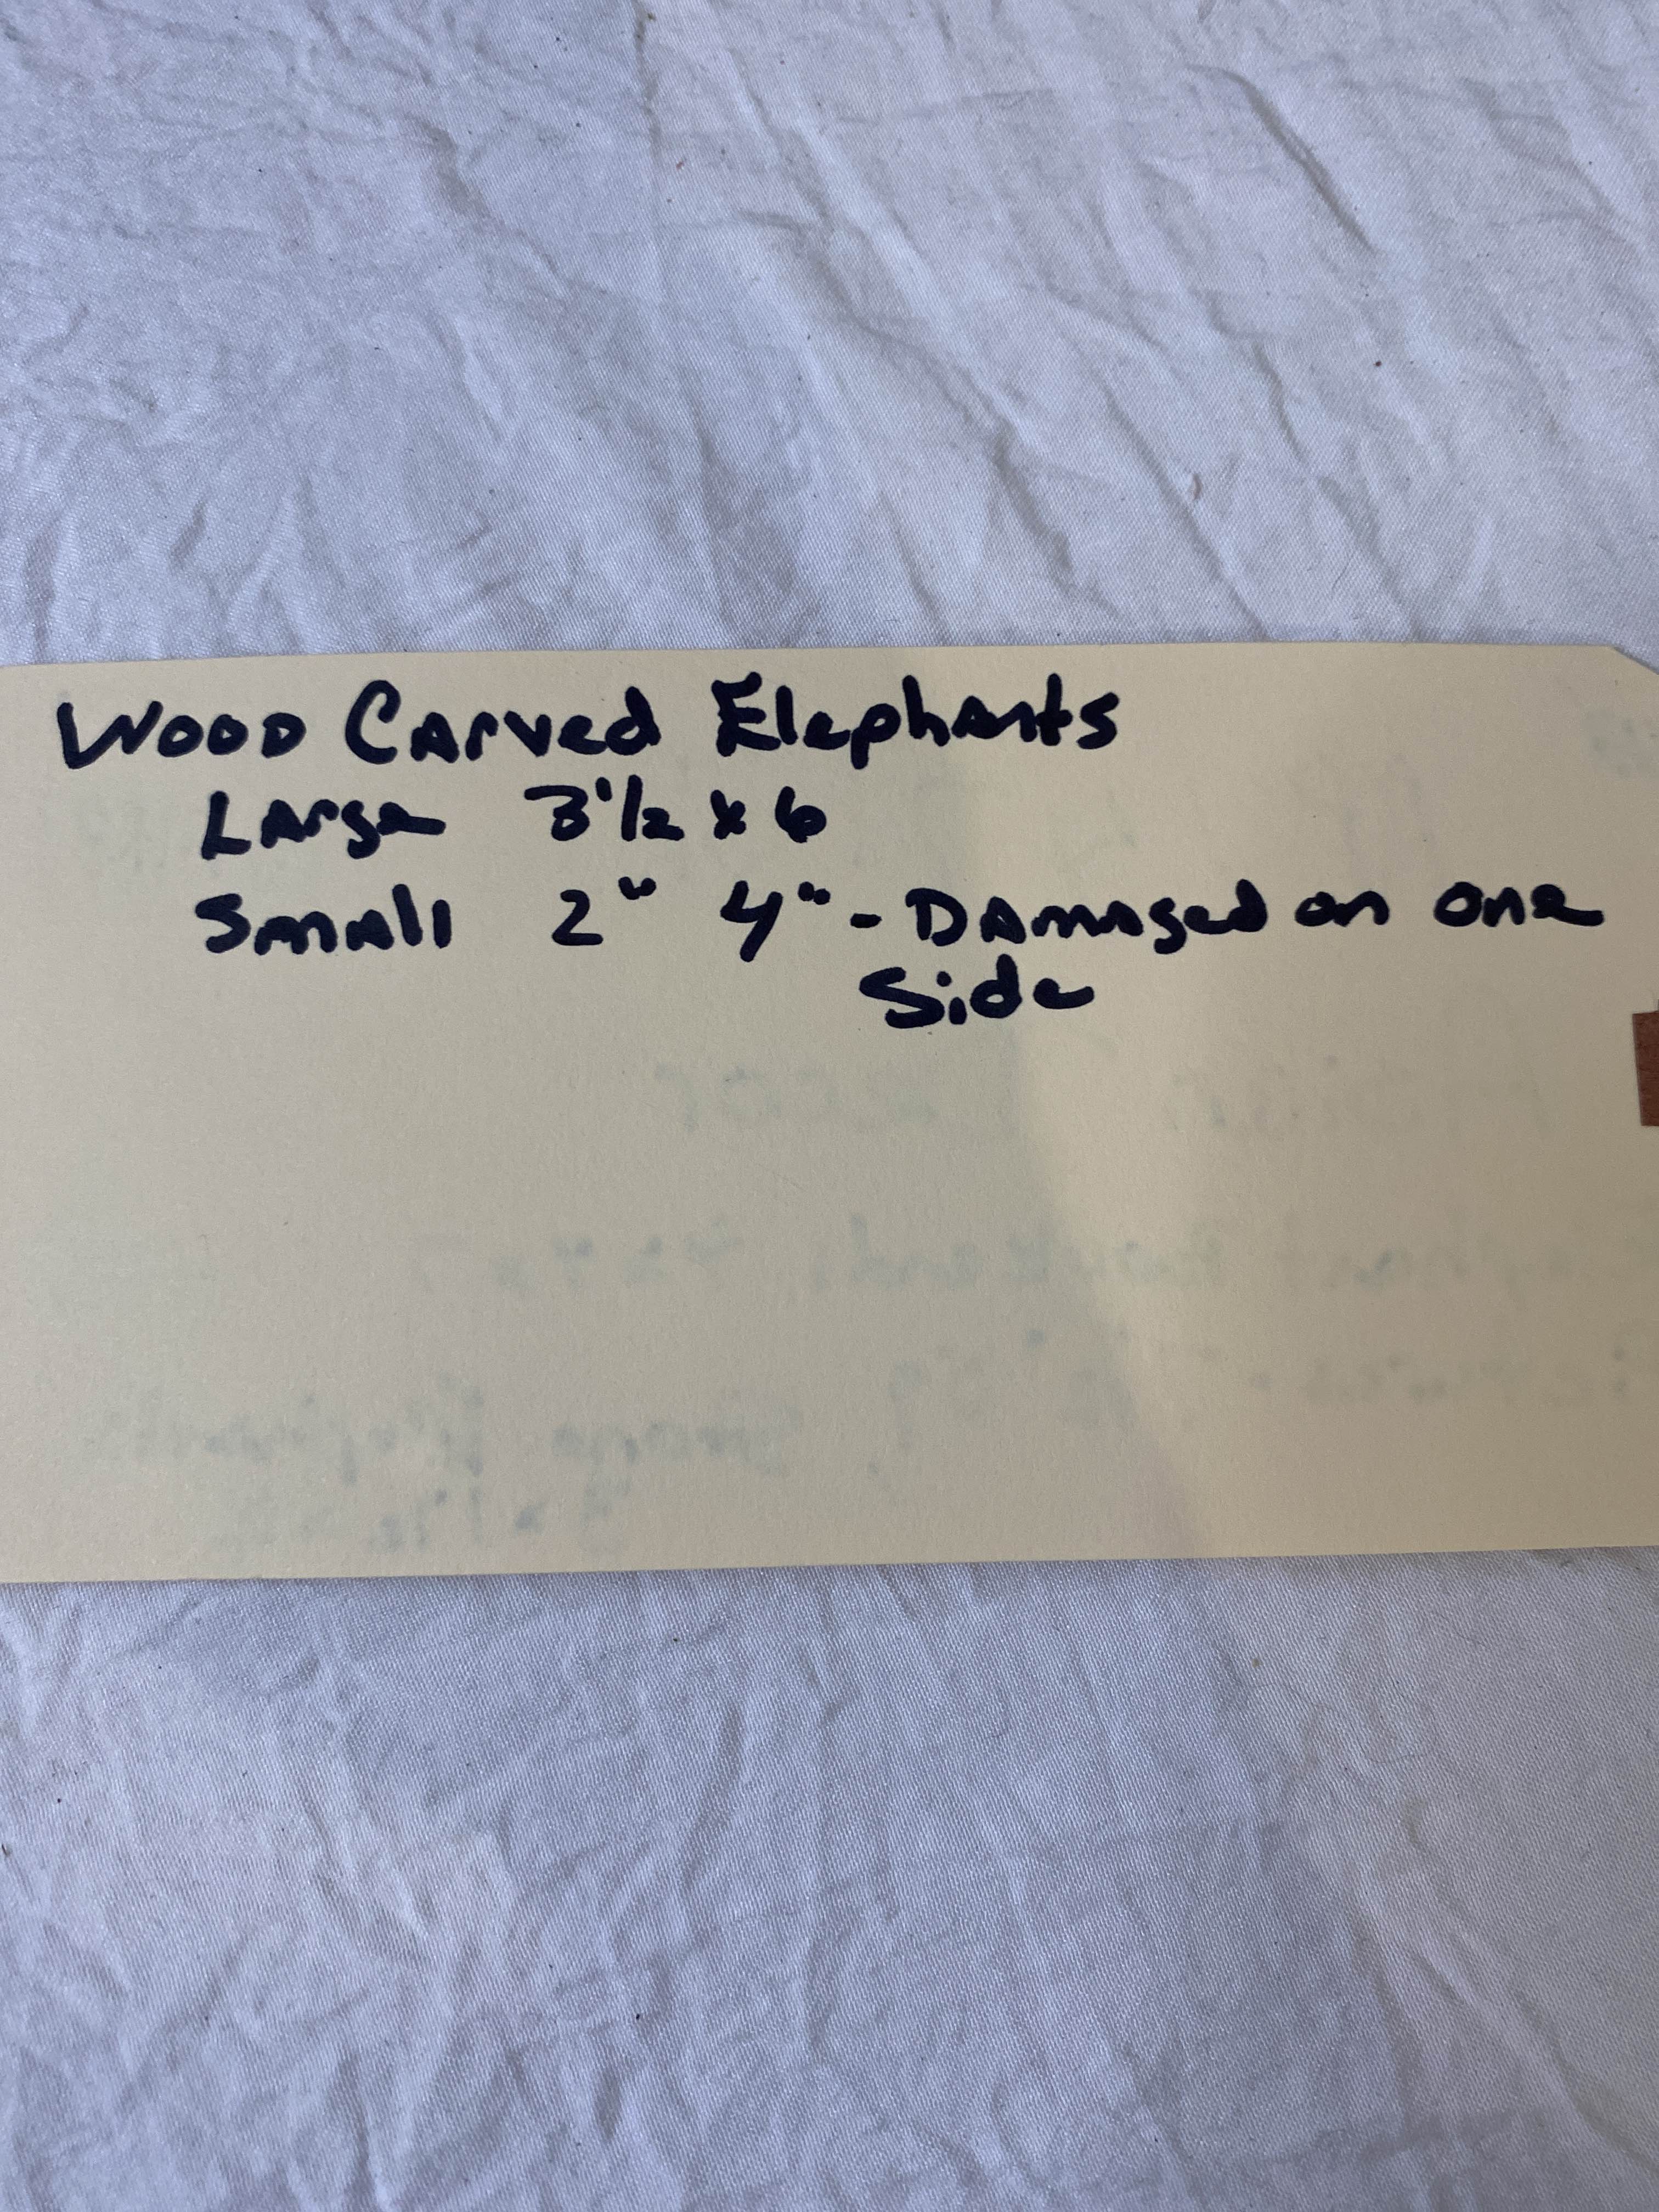 Wood Carved Elephants
Large 3 1/2 x 6
Small 2" 4" - Damaged on one
Side